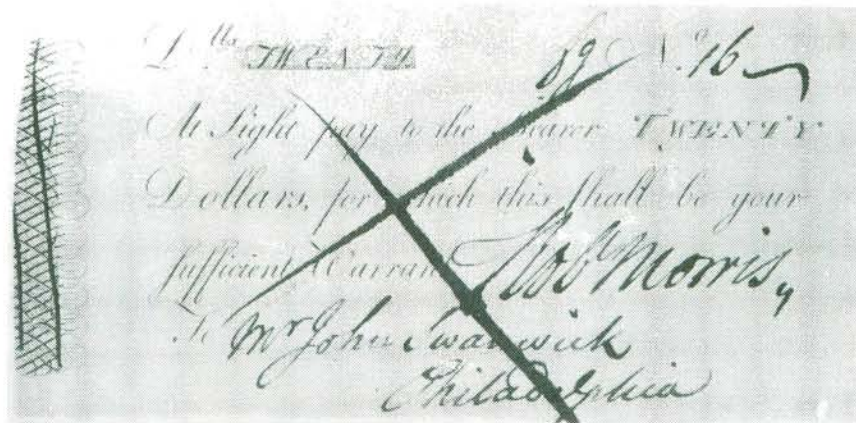 Dolls. TWENTY No. 16
At Sight pay to the Bearer TWENTY
Dollars, for which this shall be your
sufficient Warrant Robt Morris
To Mr John Swanwick
Philadelphia